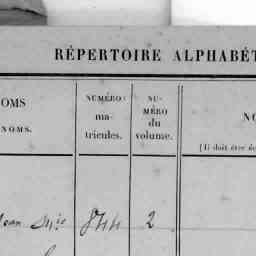 RÉPERTOIRE ALPHABÉT
OMS
NOMS.
NUMÉRO
ma-
tricules.
NU-
MÉRO
du
volume.
NO
(Il doit être de
Jean 2